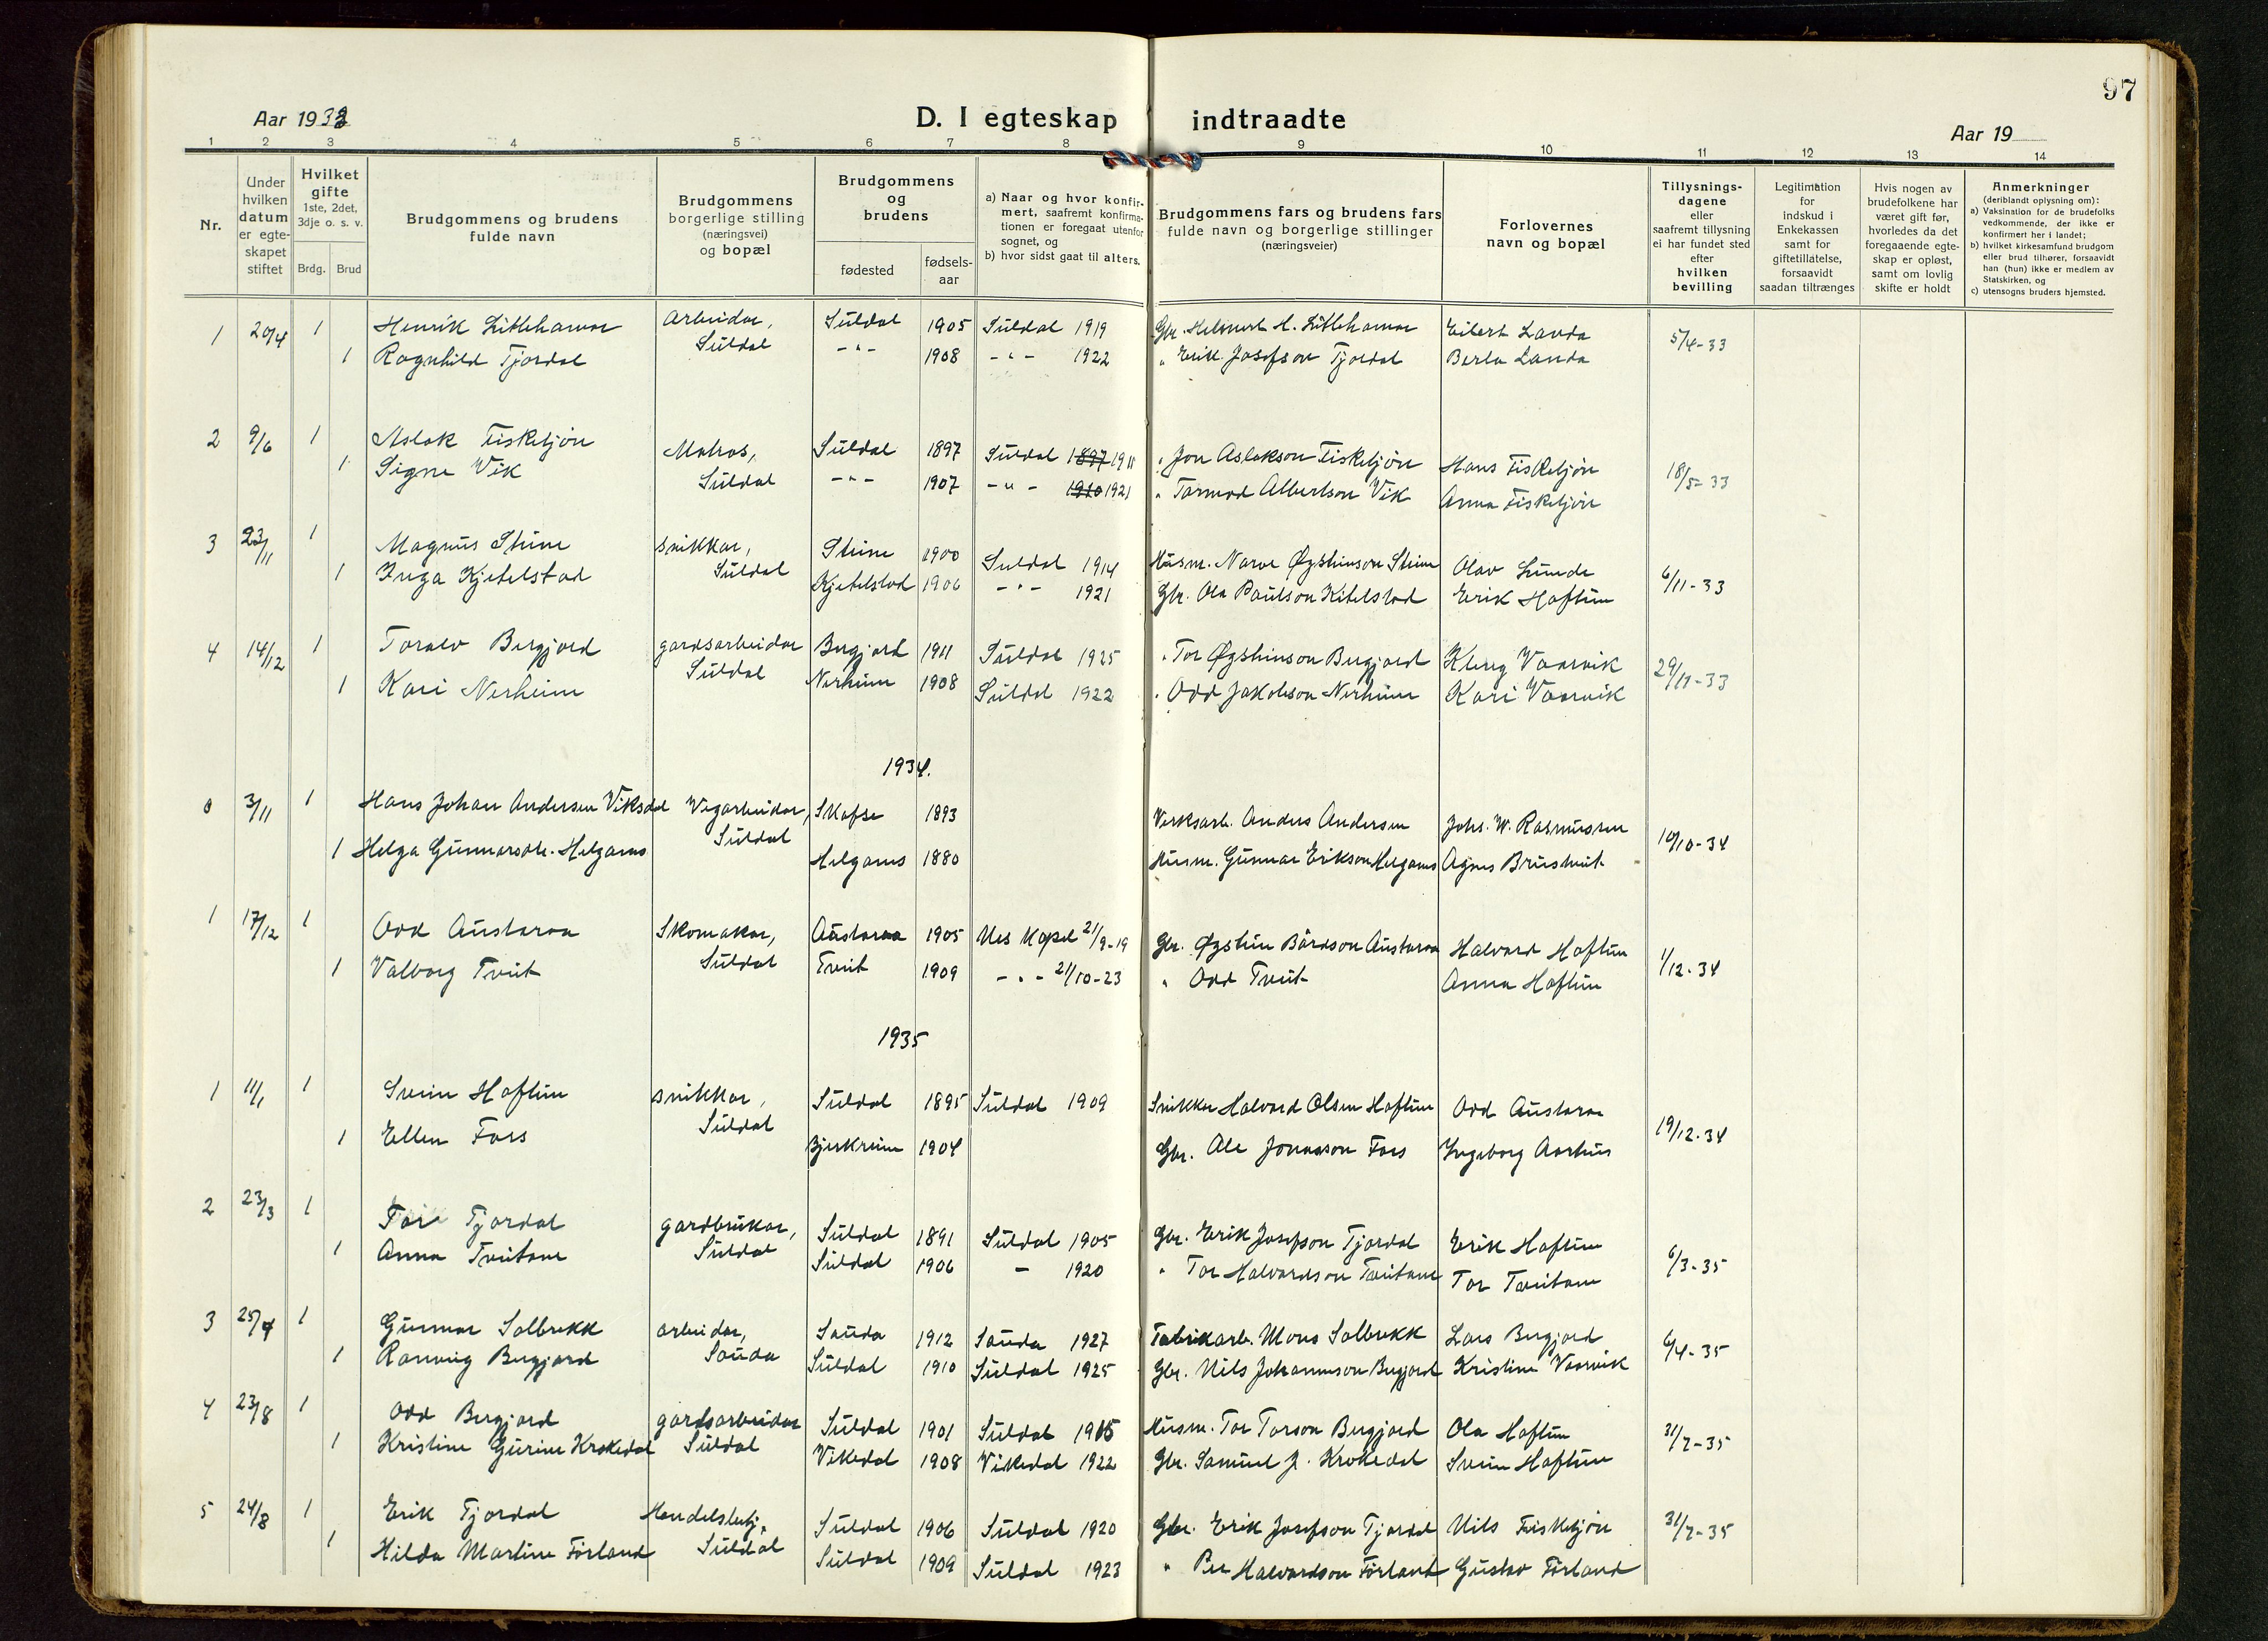 97
Aar 1933
D. I egteskap indtraadte
Aar 19
1 2 3 4 5 6 7 8 9 10 11 12 13 14
Nr.
Under hvilken datum er egte-skapet stiftet
Hvilket gifte 1ste, 2det, 3dje o. s. v.
Brdg. Brud
Brudgommens og brudens fulde navn
Brudgommens borgerlige stilling (næringsvei) og bopæl
Brudgommens og brudens
fødested
fødsels-aar
a) Naar og hvor konfir-mert, saafremt konfirma-tionen er foregaat utenfor sognet, og
b) hvor sidst gaat til alters.
Brudgommens fars og brudens fars fulde navn og borgerlige stillinger (næringsveier)
Forlovernes navn og bopæl
Tillysnings-dagene eller saafremt tillysning ei har fundet sted efter hvilken bevilling
Legitimation for indskud i Enkekassen samt for giftetillatelse, forsaavidt saadan tiltrænges
Hvis nogen av brudefolkene har været gift før, hvorledes da det foregaaende egte-skap er opløst, samt om lovlig skifte er holdt
Anmerkninger (deriblandt oplysning om):
a) Vaksination for de brudefolks vedkommende, der ikke er konfirmert her i landet;
b) hvilket kirkesamfund brudgom eller brud tilhører, forsaavidt han (hun) ikke er medlem av Statskirken, og
c) utensogns bruders hjemsted.
1 20/4 1 Henrik Litlehamar Arbeidar, Suldal Suldal 1905 Suldal 1919 Gbr. Helmert H. Litlehamar Eilert Landa 5/4-33
1 Ragnhild Tjordal -"- 1908 -"- 1922 " Erik Josefson Tjordal Berta Landa
2 9/6 1 Aslak Fisketjøn Matros, Suldal Suldal 1897 Suldal 1897 1911 " Jon Aslakson Fisketjøn Hans Fisketjøn 18/5-33
1 Signe Vik -"- 1907 -"- 1910 1921 " Tormod Albertson Vik Anna Fisketjøn
3 23/11 1 Magnus Steine snikkar, Suldal Steine 1900 Suldal 1914 Husm. Narve Øysteinson Steine Olav Lunde 6/11-33
1 Inga Kjetelstad Kjetelstad 1906 -"- 1921 Gbr. Ola Paulson Kitelstad Erik Haftun
4 14/12 1 Toralv Bergjord gardsarbeidar Suldal Bergjord 1911 Suldal 1925 " Tor Øysteinson Bergjord Kleng Vaarvik 29/11-33
1 Kari Nerheim Nerheim 1908 Suldal 1922 " Odd Jakobson Nerheim Kari Vaarvik
1934.
0 3/11 1 Hans Johan Andersen Viksdal Vegarbeidar, Suldal Skafse 1893 Verksarb. Anders Andersen Johs. W. Rasmussen 14/10-34
1 Helga Gunnarsdtr. Helganes Helganes 1880 Husm. Gunnar Erikson Helganes Agnes Brustveit
1 17/12 1 Odd Austaraa Skomakar, Suldal Austaraa 1905 Nes Kapel 21/9-19 Gbr. Øystein Bårdson Austaraa Halvard Haftun 1/12-34
1 Valborg Tveit Tveit 1909 -"- 21/10-23 " Odd Tveit Anna Haftun
1935
1 11/1 1 Svein Haftun snikkar, Suldal Suldal 1895 Suldal 1909 Snikker Halvard Olsen Haftun Odd Austaraa 19/12-34
1 Ellen Fors Bjerkreim 1904 Gbr. Ole Jonasson Fors Ingeborg Aarhus
2 23/3 1 Tor Tjordal gardbrukar, Suldal Suldal 1891 Suldal 1905 Gbr. Erik Josefson Tjordal Erik Haftun 6/3-35
1 Anna Tveitane Suldal 1906 - 1920 " Tor Halvardson Tveitane Tor Tveitane
3 25/4 1 Gunnar Solbrekk arbeidar, Sauda Sauda 1912 Sauda 1927 Fabrikarb. Mons Solbrekk Lars Bergjord 6/4-35
1 Ranveig Bergjord Suldal 1910 Suldal 1925 Gbr. Nils Johannesson Bergjord Kristine Vaarvik
4 23/8 1 Odd Bergjord gardsarbeidar Suldal Suldal 1901 Suldal 1915 Husm. Tor Torson Bergjord Ola Haftun 31/7-35
1 Kristine Gurine Krokedal Vikedal 1908 Vikedal 1922 Gbr. Samuel J. Krokedal Svein Haftun
5 24/8 1 Erik Tjordal Handelsbetj. Suldal Suldal 1906 Suldal 1920 Gbr. Erik Josefson Tjordal Nils Fisketjøn 31/7-35
1 Hilda Martine Førland Suldal 1909 Suldal 1923 " Per Halvardson Førland Gustav Førland